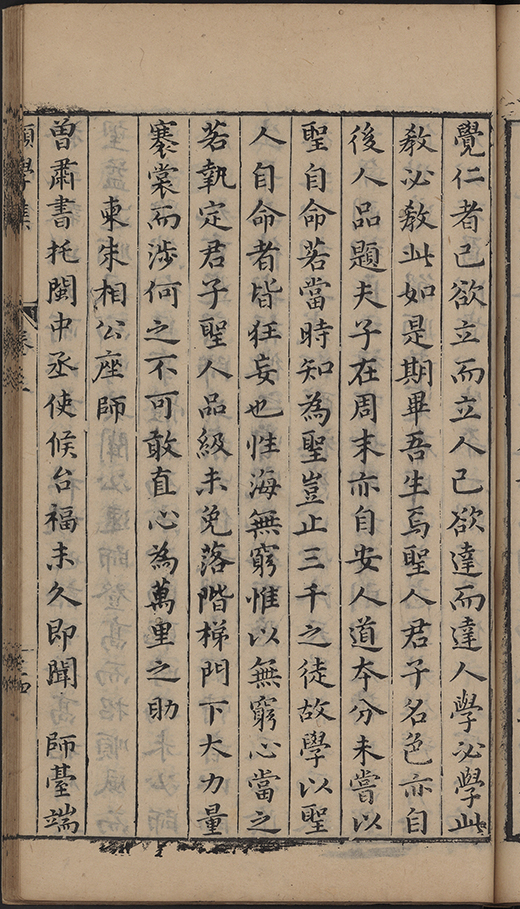 覺仁者己欲立而立人己欲達而達人學必學此
教必教此如是期畢吾生焉聖人君子名色亦自
後人品題夫子在周末亦自安人道本分未嘗以
聖自命若當時知為聖豈止三千之徒故學以聖
人自命者皆狂妄也性海無窮惟以無窮心當之
若執定君子聖人品級未免落階梯門下大力量
褰裳而涉何之不可敢直心為萬里之助
柬朱相公座師
曾肅書托閩中丞使候台福未久即聞 師臺端
願學集
卷之